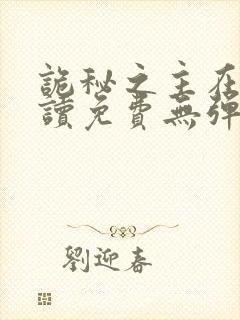 詭秘之主在
讀免費無彈
劉迎春